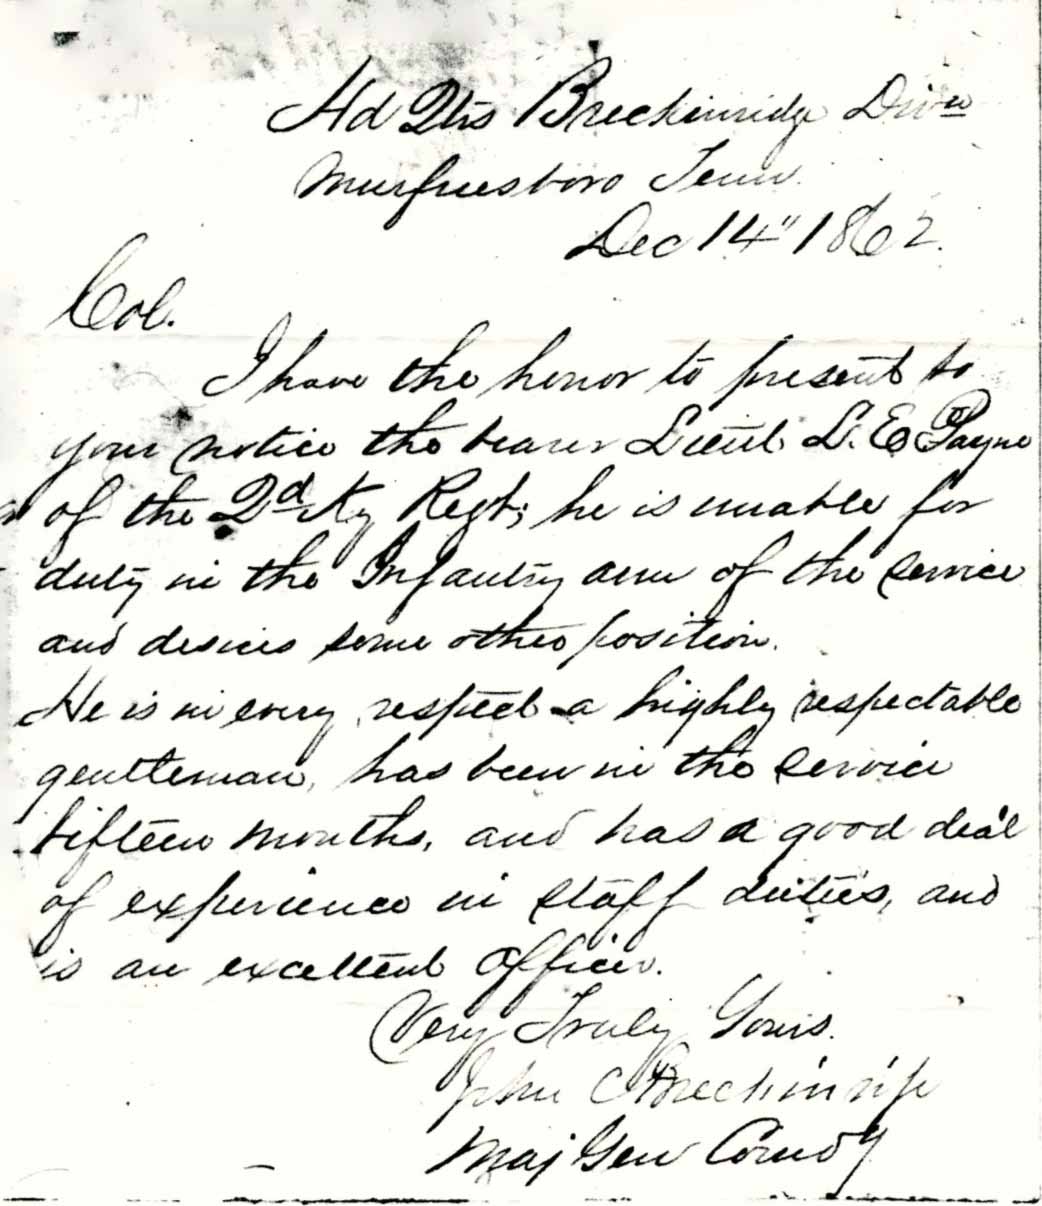 Hd Qtrs Breckinridge Divn
Murfreesboro Tenn.
Dec 14" 1862.
Col.
I have the honor to present to
your notice the bearer Lieut. L. E. Payne
of the 2d Ky Regt; he is unable for
duty in the Infantry arm of the service
and desires some other position.
He is in every respect a highly respectable
gentleman, has been in the service
fifteen months, and has a good deal
of experience in staff duties, and
is an excellent officer.
Very Truly Yours.
John C Breckinridge
Maj Gen Comdg